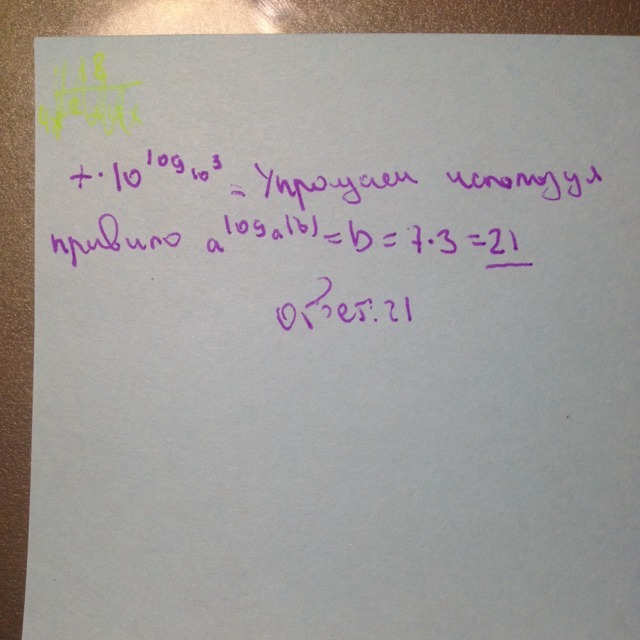 7·10^log₁₀3 = Упрощаем используя
правило a^logₐ(b) = b = 7·3 = 21
Ответ: 21